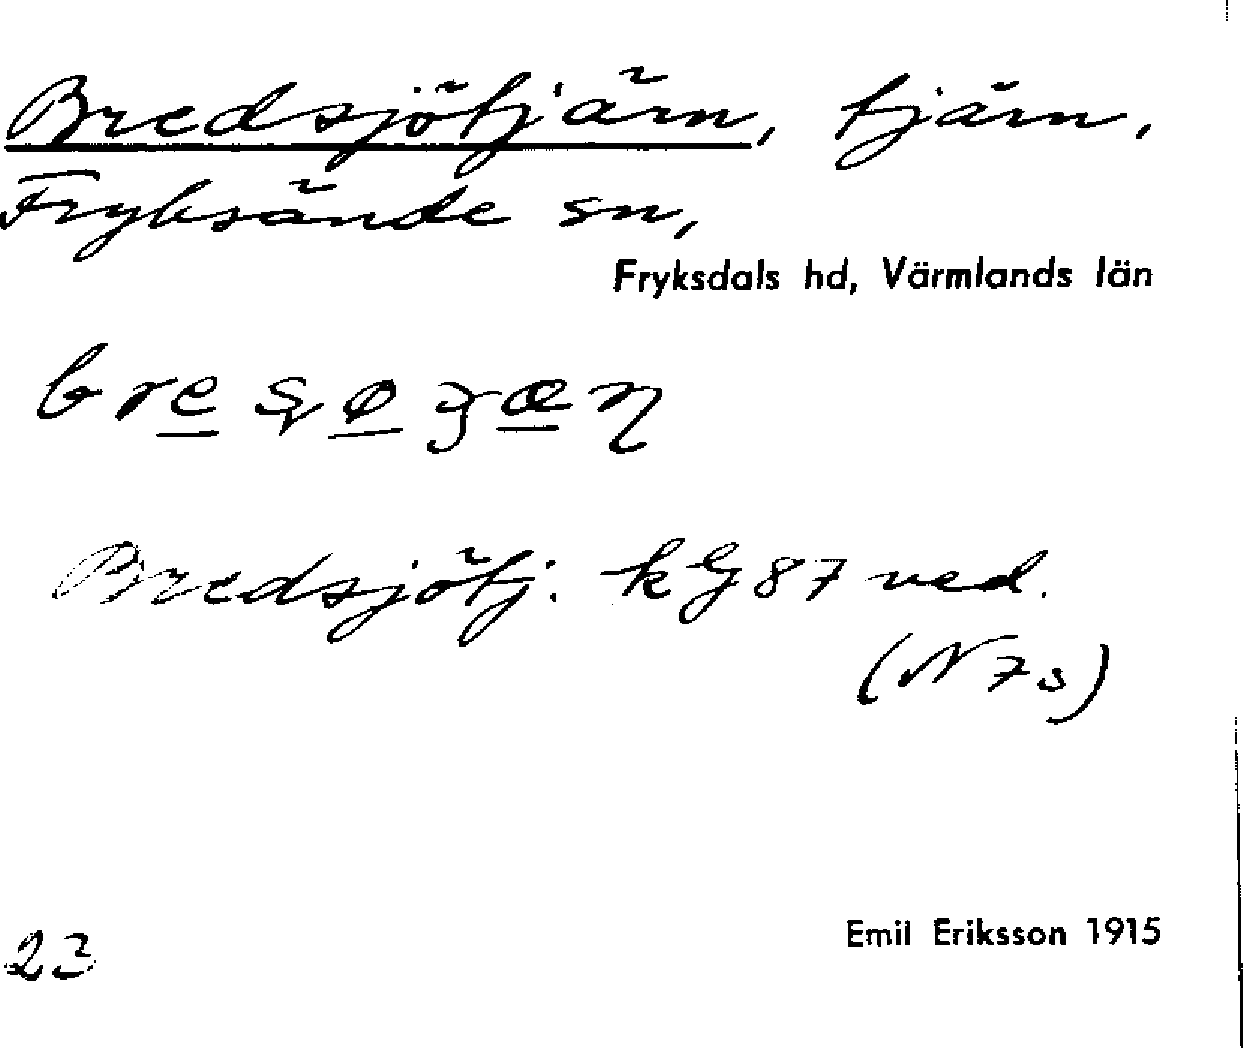 Bredsjötjärn, tjärn,
Fryksände sn,
Fryksdals hd, Värmlands län
Bredsjötj. kG 87 ved.
(N 7s)
23
Emil Eriksson 1915